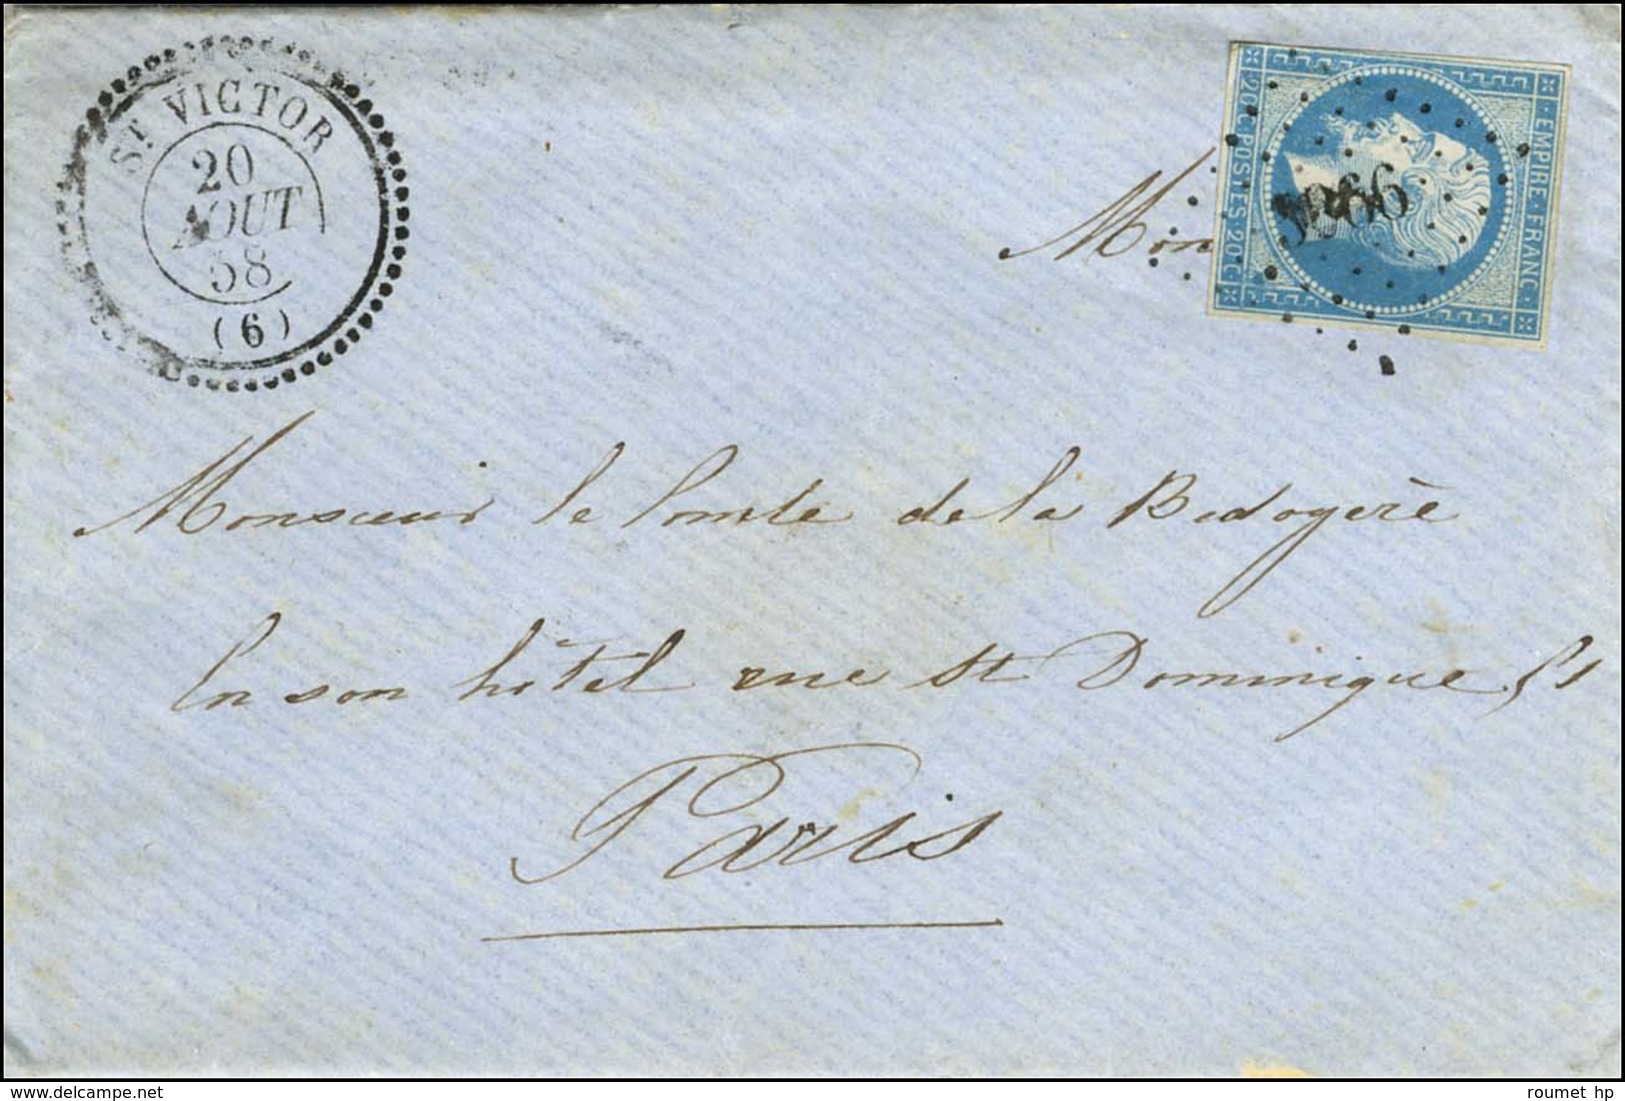 ST VICTOR
20
AOUT
58
(6)
EMPIRE FRANC
20 C POSTES 20 C
Mon
Monsieur le Comte de la Bedoyère
En son hôtel rue St Dominique
Paris
delcampe.net
roumet hp